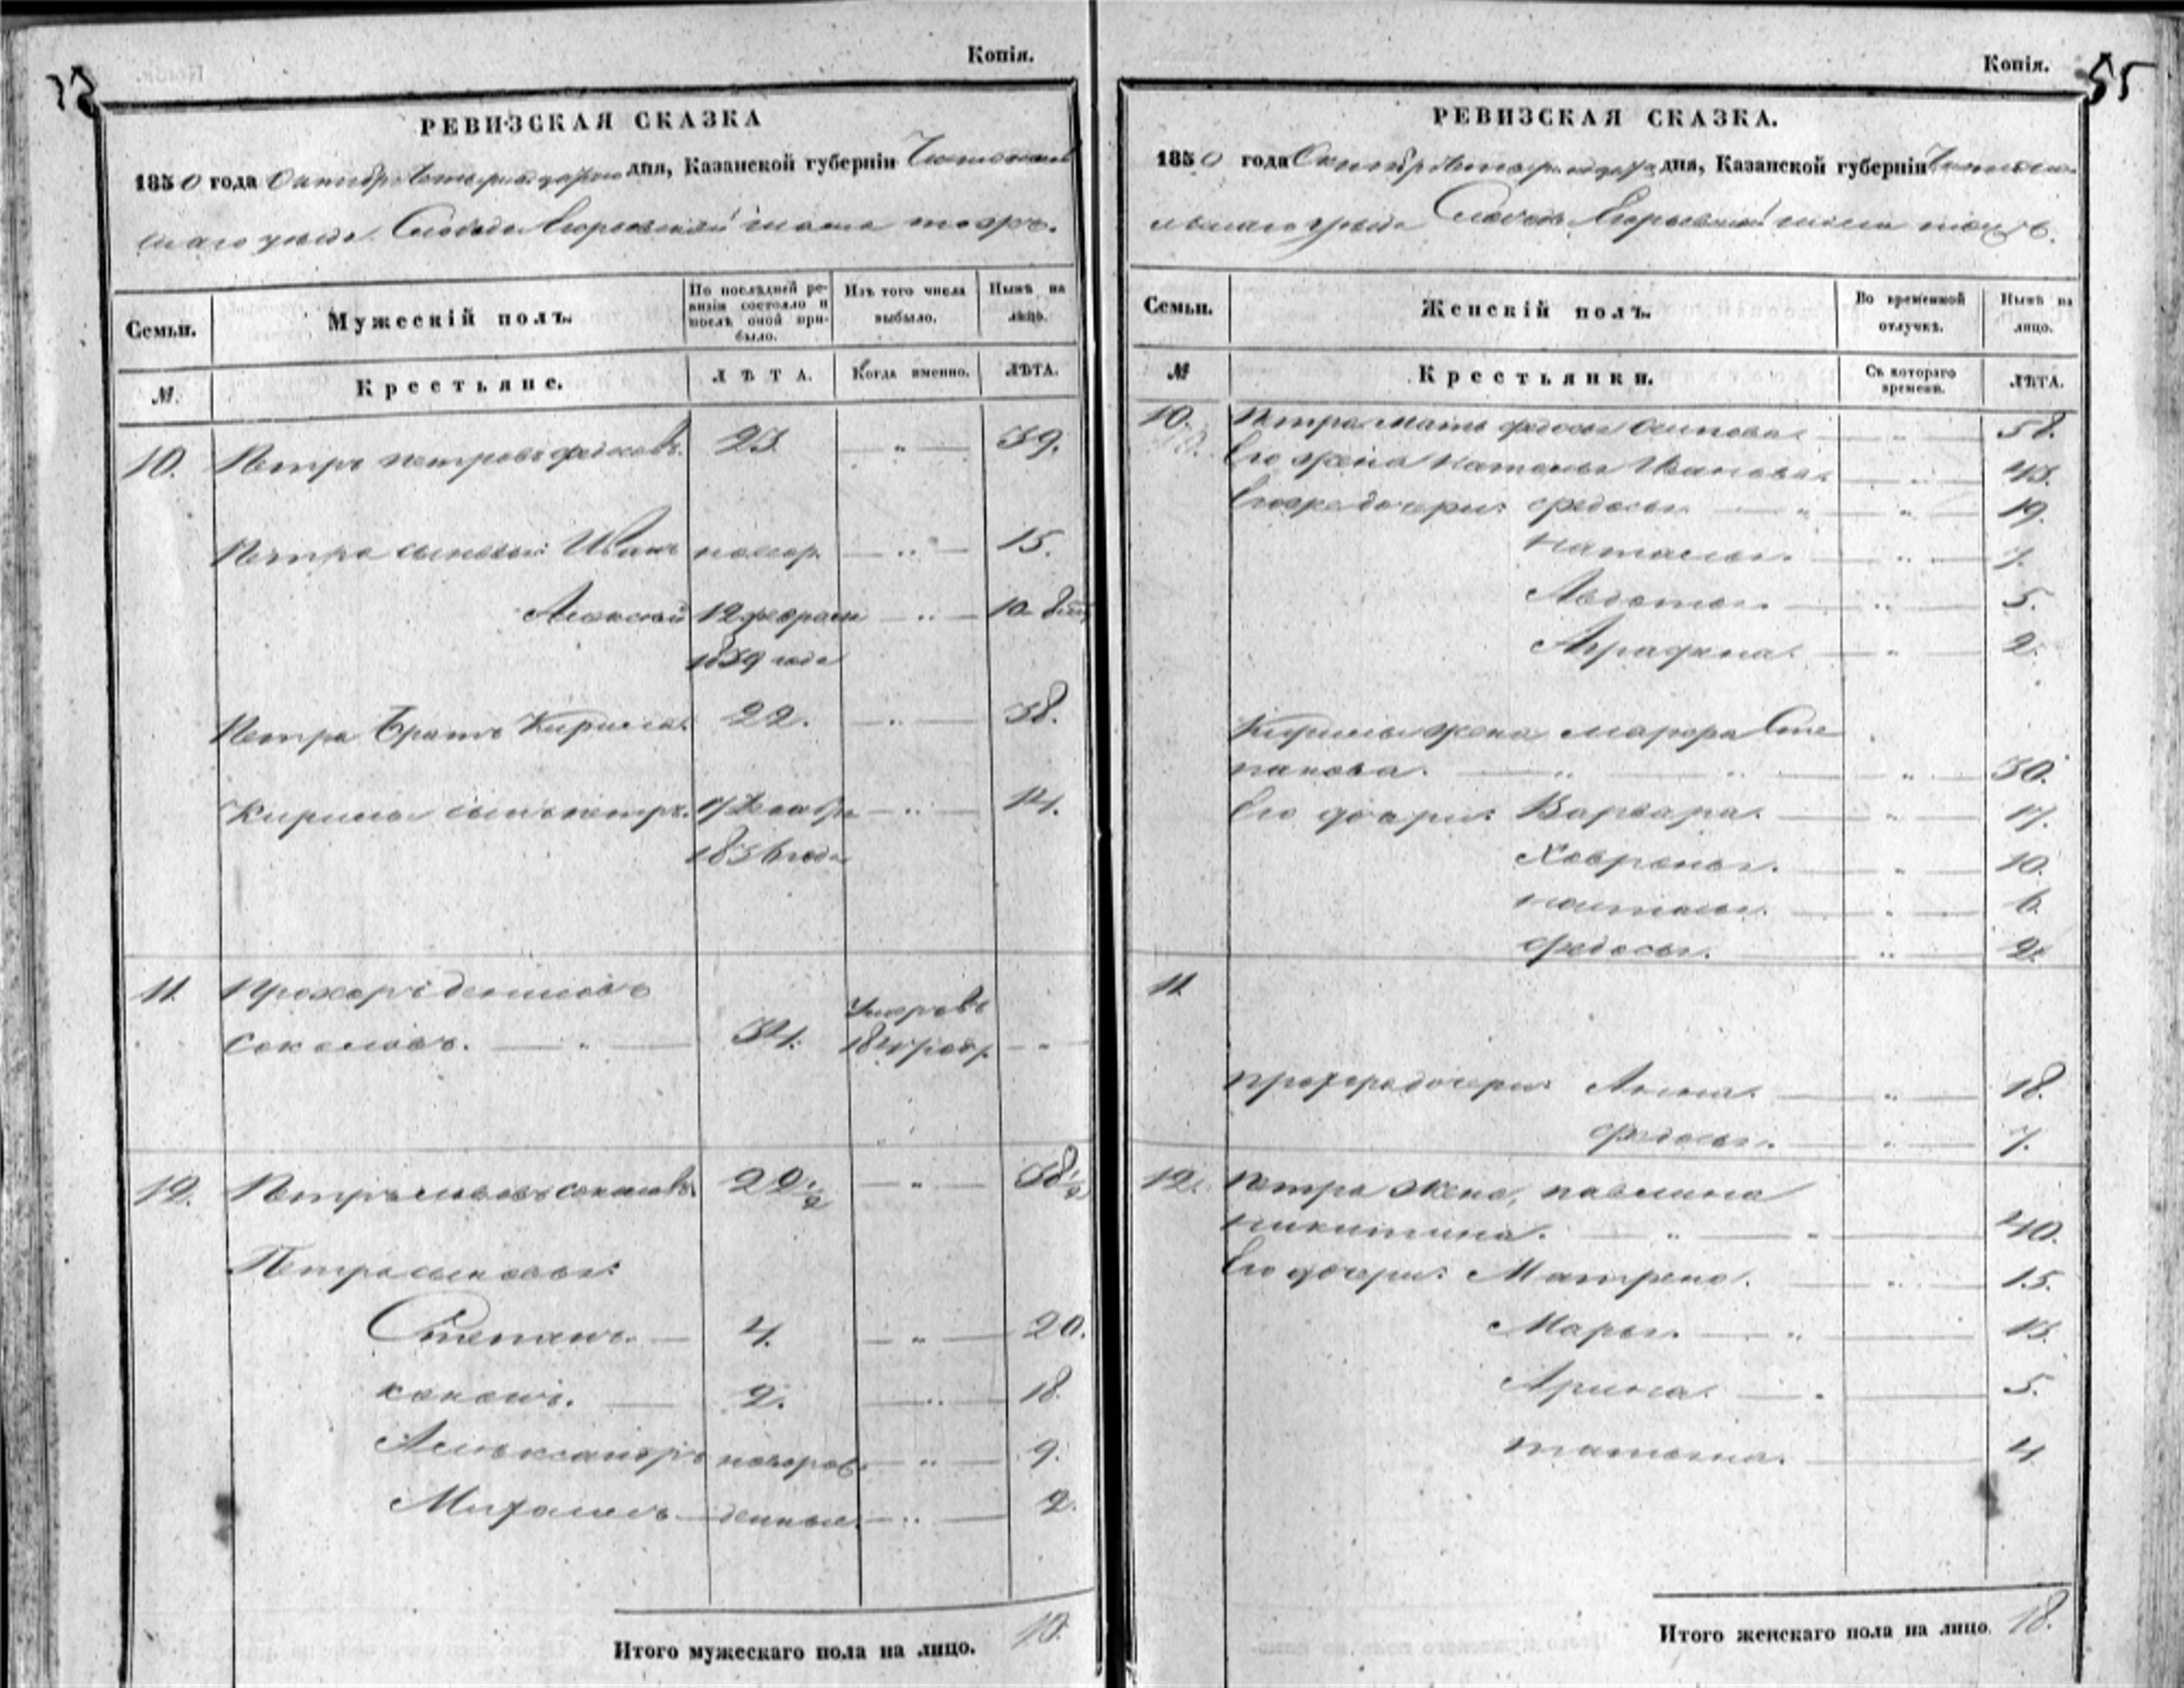 Копія.
РЕВИЗСКАЯ СКАЗКА
1850 года Октября дня, Казанской губерніи
уезда Слободы
Семьи.
Мужескій полъ.
По послѣдней ревизіи состояло и послѣ оной прибыло.
Изъ того числа выбыло.
Нынѣ на лицо.
№.
Крестьяне.
ЛѢТА.
Когда именно.
ЛѢТА.
10. Петръ петровъ 23 — „ — 39.
Петра сыновья: Иванъ новор. — „ — 15.
Алексей 12 февраля — „ — 10
1839 года
Петра братъ Кирила. 22. — „ — 38.
Кирилы сынъ петръ. — „ — 14.
1836 года
11. Прохоръ денисовъ
Соколовъ. — „ — 34. —
12. Петръ соколовъ 22 1/2 — „ — 38 1/2
Петра сыновья:
Степанъ. — 4. — „ — 20.
кононъ. — 2. — „ — 18.
Александръ новорож — „ — 9.
Михаилъ — денные. — „ — 2.
Итого мужескаго пола на лицо. 10.
Копія.
55
РЕВИЗСКАЯ СКАЗКА.
1850 года Октября дня, Казанской губерніи
уезда Слободы
Семьи.
Женскій полъ.
Во временной отлучкѣ.
Нынѣ на лицо.
№
Крестьянки.
Съ котораго времени.
ЛѢТА.
10. Петра мать федосья осипова — „ — 58.
Его жена наталья Иванова — „ — 43.
дочери: федосья — „ — 19.
наталья. — „ — 7.
Авдотья. — „ — 5.
Аграфена. — „ — 2.
Кирилы жена марфа Сте
панова. — „ — 30.
Его дочери: Варвара. — „ — 17.
Хавронья. — „ — 10.
наталья. — „ — 6.
федосья. — „ — 2.
11.
прохора дочери: Анна. — „ — 18.
федосья. — „ — 7.
12. Петра жена, павлина
никитина. — „ — 40.
Его дочери: Матрена. — „ — 15.
Марья. — „ — 13.
Арина. — „ — 5.
татьяна. — 4
Итого женскаго пола на лицо. 18.